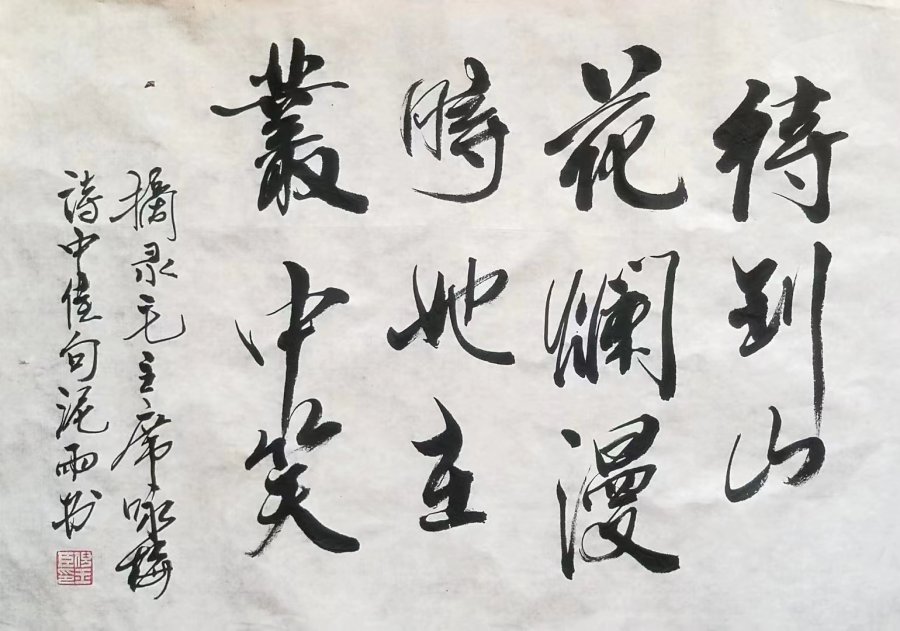 待到山
花爛漫
時她在
叢中笑
摘录毛主席咏梅
诗中佳句泥雨书